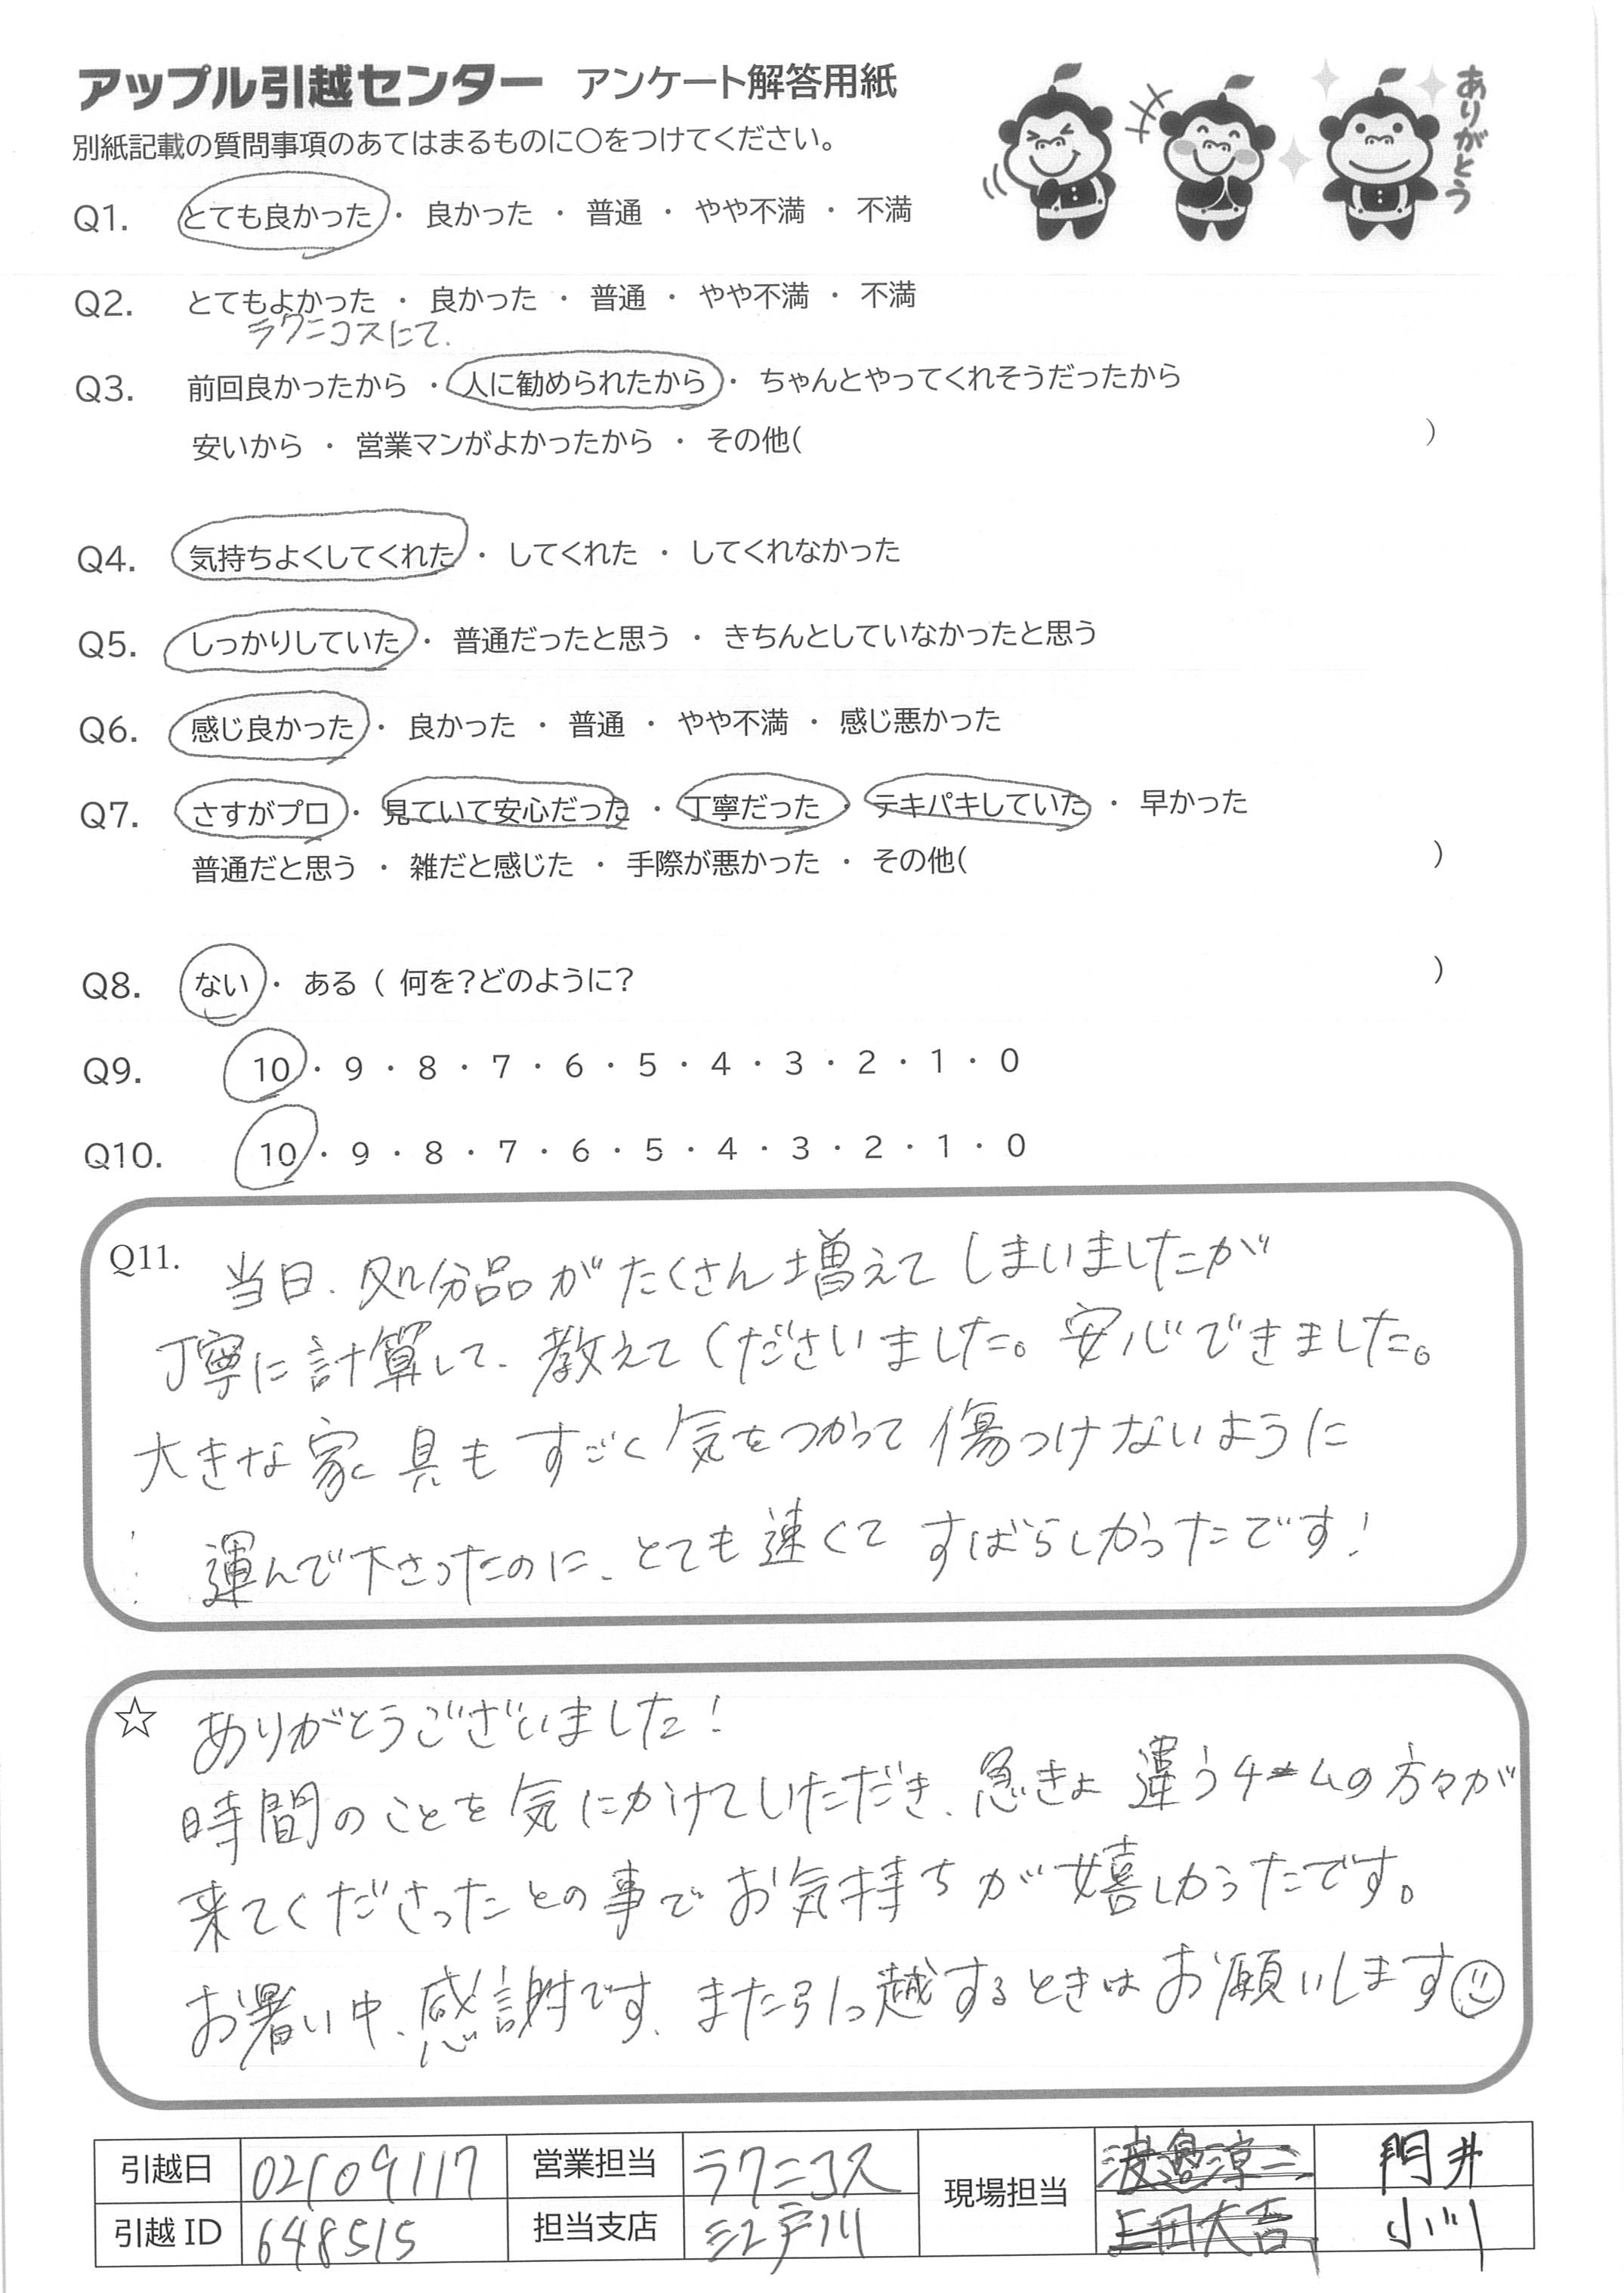 アップル引越センター アンケート解答用紙
ありがとう
別紙記載の質問事項のあてはまるものに○をつけてください。
Q1. とても良かった ・ 良かった ・ 普通 ・ やや不満 ・ 不満
Q2. とてもよかった ・ 良かった ・ 普通 ・ やや不満 ・ 不満
ラクニコスにて.
Q3. 前回良かったから ・ 人に勧められたから ・ ちゃんとやってくれそうだったから
安いから ・ 営業マンがよかったから ・ その他( )
Q4. 気持ちよくしてくれた ・ してくれた ・ してくれなかった
Q5. しっかりしていた ・ 普通だったと思う ・ きちんとしていなかったと思う
Q6. 感じ良かった ・ 良かった ・ 普通 ・ やや不満 ・ 感じ悪かった
Q7. さすがプロ ・ 見ていて安心だった ・ 丁寧だった ・ テキパキしていた ・ 早かった
普通だと思う ・ 雑だと感じた ・ 手際が悪かった ・ その他( )
Q8. ない ・ ある ( 何を?どのように? )
Q9. 10 ・ 9 ・ 8 ・ 7 ・ 6 ・ 5 ・ 4 ・ 3 ・ 2 ・ 1 ・ 0
Q10. 10 ・ 9 ・ 8 ・ 7 ・ 6 ・ 5 ・ 4 ・ 3 ・ 2 ・ 1 ・ 0
Q11. 当日、処分品がたくさん増えてしまいましたが
丁寧に計算して、教えてくださいました。安心できました。
大きな家具もすごく気をつかって傷つけないように
運んで下さったのに、とても速くてすばらしかったです!
☆ ありがとうございました!
時間のことを気にかけていただき、急きょ違うチームの方々が
来てくださったとの事でお気持ちが嬉しかったです。
お暑い中、感謝です、また引っ越するときはお願いします
引越日 02/09/17 営業担当 ラクニコス 現場担当 渡邉淳二 門井
引越ID 648515 担当支店 江戸川 上田大吾 小川